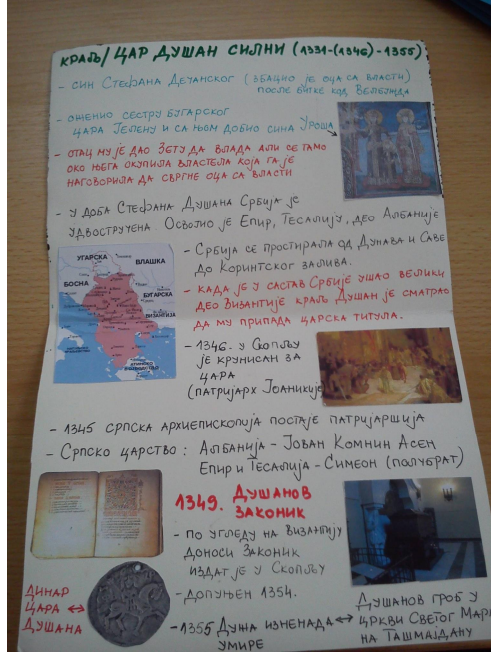 КРАЉ/ ЦАР ДУШАН СИЛНИ (1331-(1346)-1355)
- СИН СТЕФАНА ДЕЧАНСКОГ (ЗБАЦИО ЈЕ ОЦА СА ВЛАСТИ)
ПОСЛЕ БИТКЕ КОД ВЕЛБУЖДА
- ОЖЕНИО СЕСТРУ БУГАРСКОГ
ЦАРА ЈЕЛЕНУ И СА ЊОМ ДОБИО СИНА УРОША
- ОТАЦ МУ ЈЕ ДАО ЗЕТУ ДА ВЛАДА АЛИ СЕ ТАМО
ОКО ЊЕГА ОКУПИЛА ВЛАСТЕЛА КОЈА ГА ЈЕ
НАГОВОРИЛА ДА СВРГНЕ ОЦА СА ВЛАСТИ
- У ДОБА СТЕФАНА ДУШАНА СРБИЈА ЈЕ
УДВОСТРУЧЕНА. ОСВОЈИО ЈЕ ЕПИР, ТЕСАЛИЈУ, ДЕО АЛБАНИЈЕ
- СРБИЈА СЕ ПРОСТИРАЛА ОД ДУНАВА И САВЕ
ДО КОРИНТСКОГ ЗАЛИВА.
УГАРСКА
ВЛАШКА
БОСНА
БУГАРСКА
ВИЗАНТИЈА
- КАДА ЈЕ У САСТАВ СРБИЈЕ УШАО ВЕЛИКИ
ДЕО ВИЗАНТИЈЕ КРАЉ ДУШАН ЈЕ СМАТРАО
ДА МУ ПРИПАДА ЦАРСКА ТИТУЛА.
- 1346. У СКОПЉУ
ЈЕ КРУНИСАН ЗА
ЦАРА
(ПАТРИЈАРХ ЈОАНИКИЈЕ)
- 1345 СРПСКА АРХИЕПИСКОПИЈА ПОСТАЈЕ ПАТРИЈАРШИЈА
- СРПСКО ЦАРСТВО: АЛБАНИЈА - ЈОВАН КОМНИН АСЕН
ЕПИР И ТЕСАЛИЈА - СИМЕОН (ПОЛУБРАТ)
1349. ДУШАНОВ
ЗАКОНИК
- ПО УГЛЕДУ НА ВИЗАНТИЈУ
ДОНОСИ ЗАКОНИК
ИЗДАТ ЈЕ У СКОПЉУ
- ДОПУЊЕН 1354.
- 1355 ИЗНЕНАДА
УМИРЕ
ДИНАР
ЦАРА
ДУШАНА
ДУШАНОВ ГРОБ У
ЦРКВИ СВЕТОГ
НА ТАШМАЈДАНУ